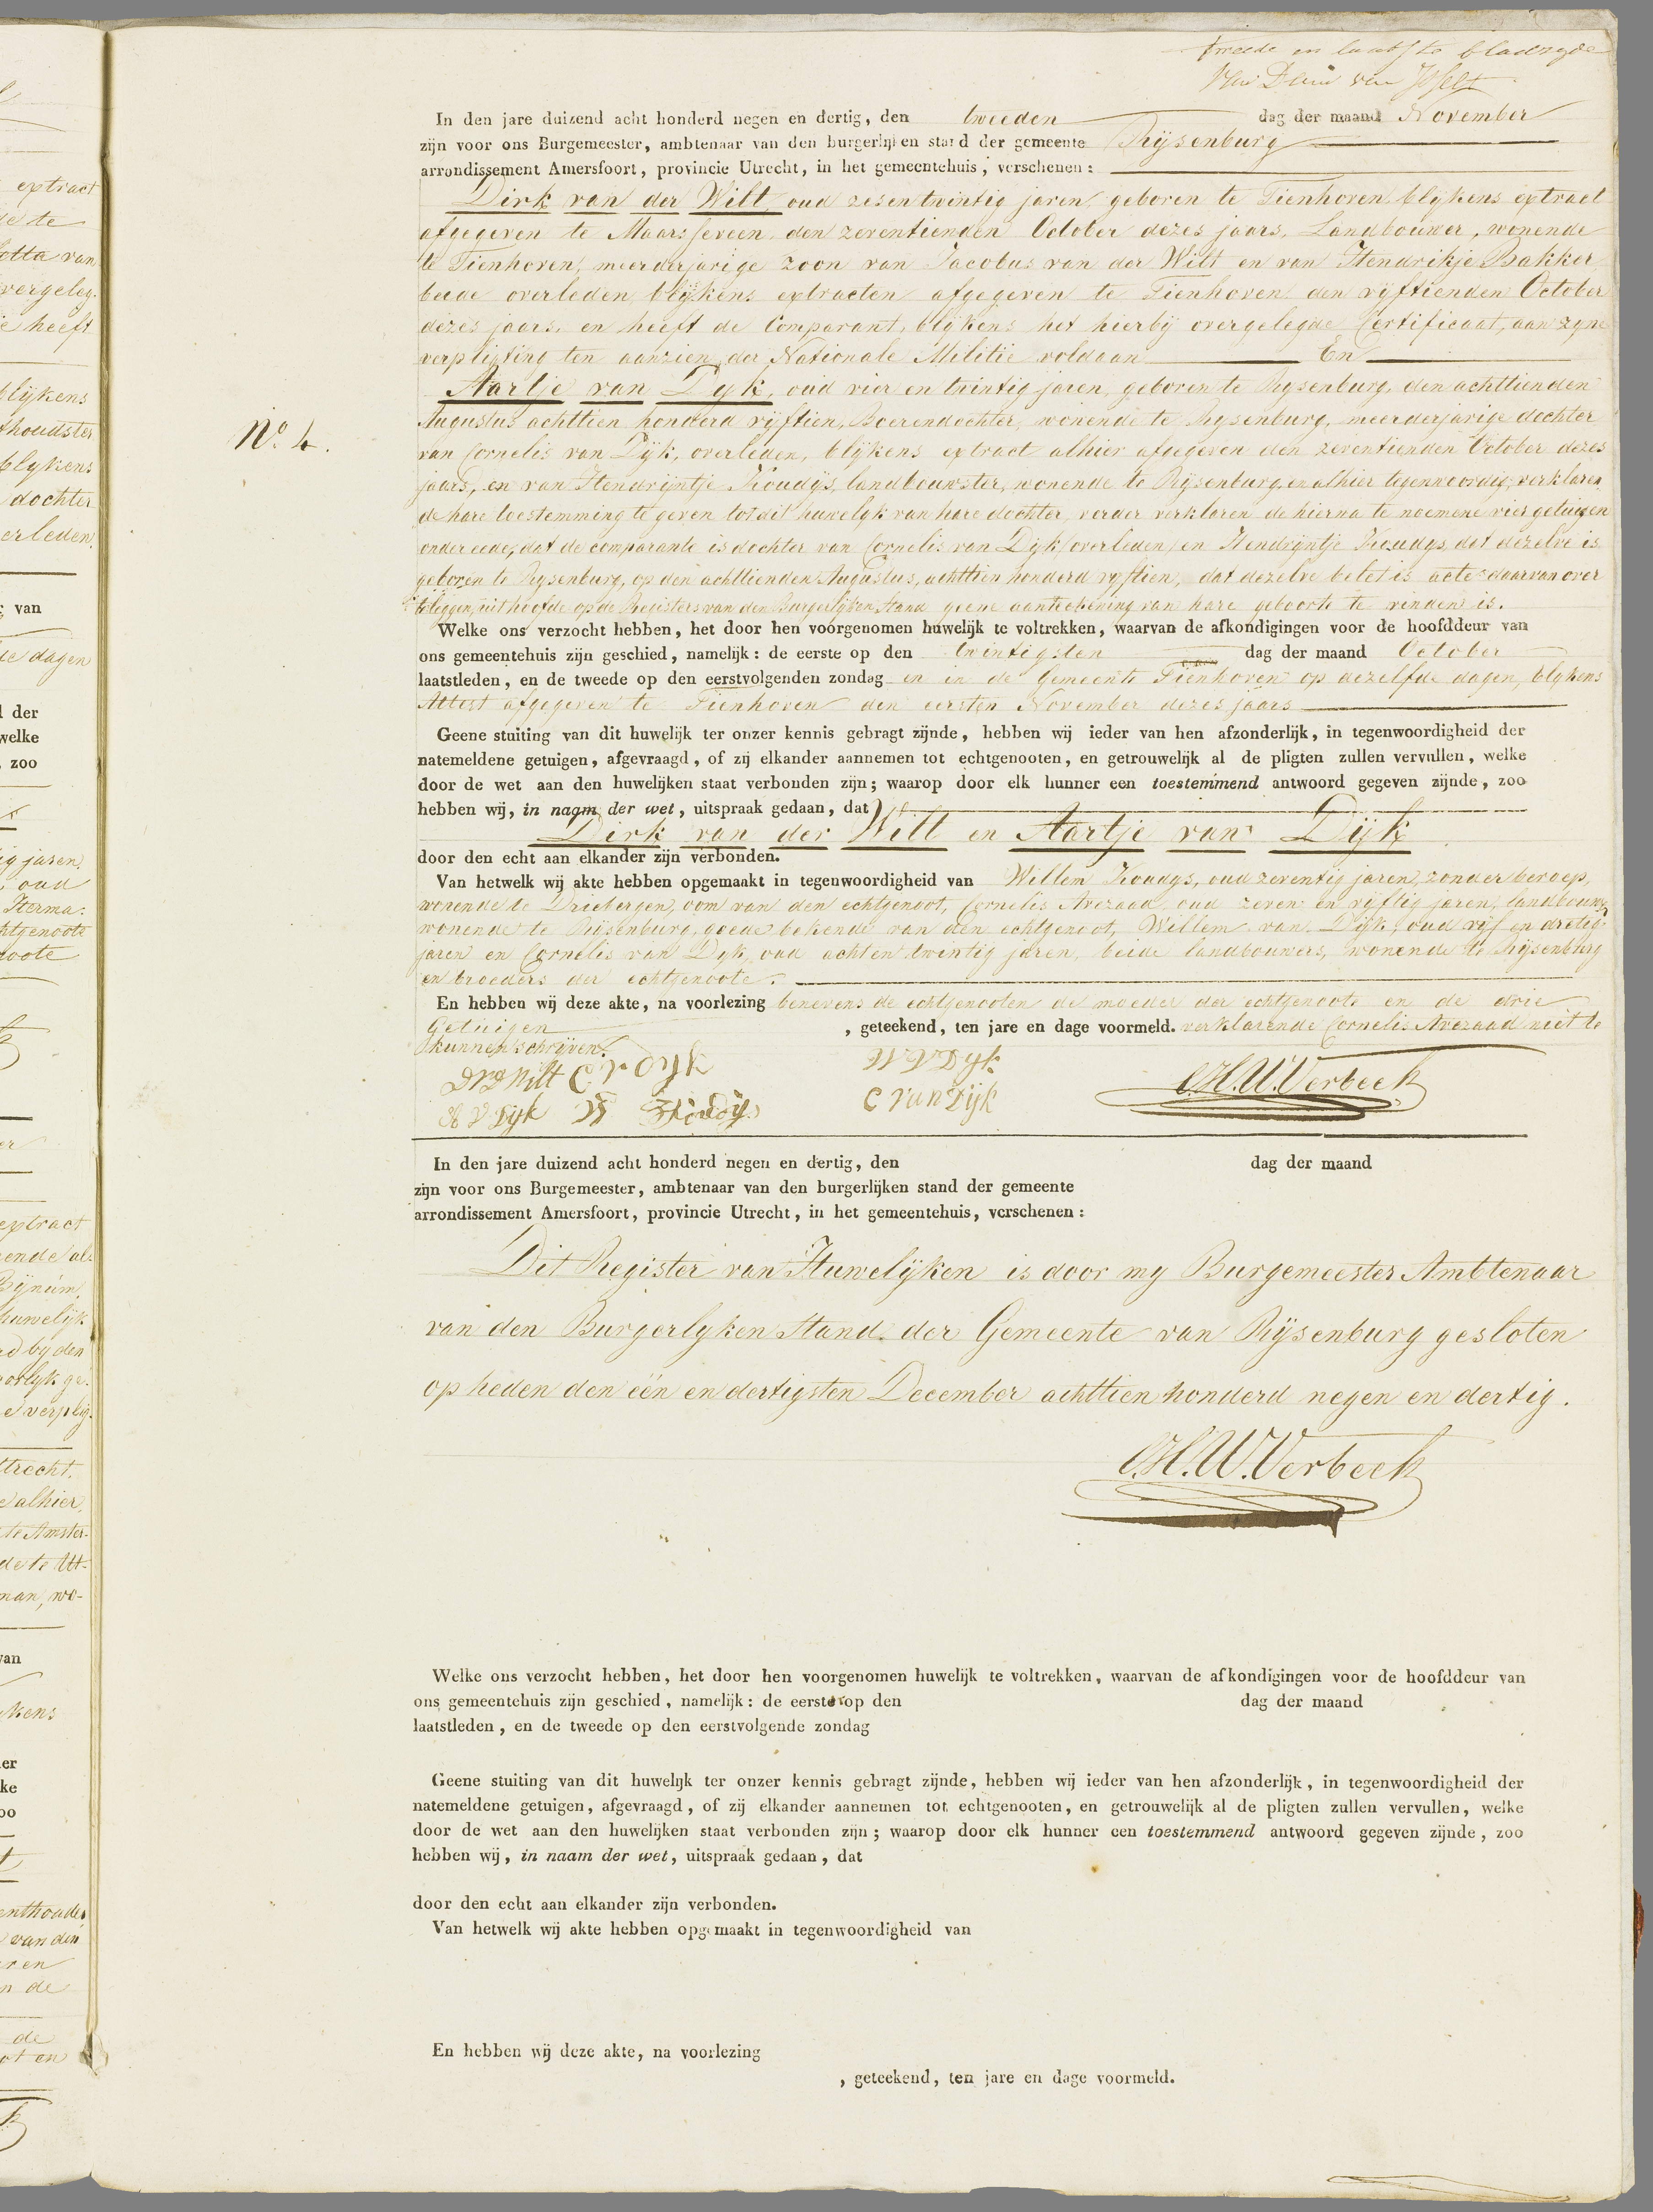 tweede en laatste bladzyde
Van Dam van Isselt
In den jare duizend acht honderd negen en dertig, den tweeden dag der maand November
zijn voor ons Burgemeester, ambtenaar van den burgerlijken stand der gemeente Rijsenburg
arrondissement Amersfoort, provincie Utrecht, in het gemeentehuis, verschenen:
Dirk van der Wilt, oud zesentwintig jaren, geboren te Tienhoven blykens extract
afgegeven te Maarsseveen, den zeventienden October dezes jaars, Landbouwer, wonende
te Tienhoven, meerderjarige zoon van Jacobus van der Wilt en van Hendrikje Bakker
beide overleden, blijkens extracten afgegeven te Tienhoven den vijftienden October
dezes jaars, en heeft de Comparant, blijkens het hierbij overgelegde Certificaat, aan zyne
verpligting ten aanzien der Nationale Militie voldaan En
Aartje van Dyk, oud vier en twintig jaren, geboren te Rysenburg, den achttienden
Augustus achttien honderd vijftien, Boerendochter, wonende te Rysenburg, meerderjarige dochter
van Cornelis van Dijk, overleden, blijkens extract alhier afgegeven den zeventienden October dezes
jaars, en van Hendrijntje Koudys, landbouwster, wonende te Rijsenburg, en alhier tegenwoordig, verklaren
de hare toestemming te geven tot dit huwelyk van hare dochter, verder verklaren de hierna te noemene vier getuigen
onder eede, dat de comparante is dochter van Cornelis van Dijk (overleden) en Hendrijntje Koudys, dat dezelve is
geboren te Rysenburg, op den achttienden Augustus, achttien honderd vyftien, dat dezelve belet is acte daarvan over
teleggen, uit hoofde op de Registers van den Burgerlyken Stand geene aanteekening van hare geboorte te vinden is.
No 4.
Welke ons verzocht hebben, het door hen voorgenomen huwelijk te voltrekken, waarvan de afkondigingen voor de hoofddeur van
ons gemeentehuis zijn geschied, namelijk: de eerste op den twintigsten dag der maand October
laatstleden, en de tweede op den eerstvolgenden zondag en in de Gemeente Tienhoven op dezelfde dagen, blykens
Attest afgegeven te Tienhoven den eersten November dezes jaars
Geene stuiting van dit huwelijk ter onzer kennis gebragt zijnde, hebben wij ieder van hen afzonderlijk, in tegenwoordigheid der
natemeldene getuigen, afgevraagd, of zij elkander aannemen tot echtgenooten, en getrouwelijk al de pligten zullen vervullen, welke
door de wet aan den huwelijken staat verbonden zijn; waarop door elk hunner een toestemmend antwoord gegeven zijnde, zoo
hebben wij, in naam der wet, uitspraak gedaan, dat
Dirk van der Wilt en Aartje van Dijk
door den echt aan elkander zijn verbonden.
Van hetwelk wij akte hebben opgemaakt in tegenwoordigheid van Willem Koudys, oud zeventig jaren, zonder beroep,
wonende te Driebergen, oom van den echtgenoot, Cornelis Avezaad, oud zeven en vijftig jaren, landbouwer
wonende te Rijsenburg, goede bekende van den echtgenoot, Willem van Dijk, oud vijf en dretig
jaren en Cornelis van Dyk, oud achten twintig jaren, beide landbouwers, wonende te Rijsenburg
en broeders der echtgenoote.
En hebben wij deze akte, na voorlezing benevens de echtgenooten de moeder der echtgenoote en de drie
Getuigen, geteekend, ten jare en dage voormeld. verklarende Cornelis Avezaad niet te
kunnen schrijven.
DVD Wilt C v Dyk W V Dyk
A V Dijk W Koudijs C van Dijk C.H.W. Verbeek
In den jare duizend acht honderd negen en dertig, den dag der maand
zijn voor ons Burgemeester, ambtenaar van den burgerlijken stand der gemeente
arrondissement Amersfoort, provincie Utrecht, in het gemeentehuis, verschenen:
Dit Register van Huwelijken is door my Burgemeester Ambtenaar
van den Burgerlyken Stand der Gemeente van Rijsenburg gesloten
op heden den één en dertigsten December achttien honderd negen en dertig.
C.H.W. Verbeek
Welke ons verzocht hebben, het door hen voorgenomen huwelijk te voltrekken, waarvan de afkondigingen voor de hoofddeur van
ons gemeentehuis zijn geschied, namelijk: de eerste op den dag der maand
laatstleden, en de tweede op den eerstvolgende zondag
Geene stuiting van dit huwelijk ter onzer kennis gebragt zijnde, hebben wij ieder van hen afzonderlijk, in tegenwoordigheid der
natemeldene getuigen, afgevraagd, of zij elkander aannemen tot echtgenooten, en getrouwelijk al de pligten zullen vervullen, welke
door de wet aan den huwelijken staat verbonden zijn; waarop door elk hunner een toestemmend antwoord gegeven zijnde, zoo
hebben wij, in naam der wet, uitspraak gedaan, dat
door den echt aan elkander zijn verbonden.
Van hetwelk wij akte hebben opgemaakt in tegenwoordigheid van
En hebben wij deze akte, na voorlezing
, geteekend, ten jare en dage voormeld.